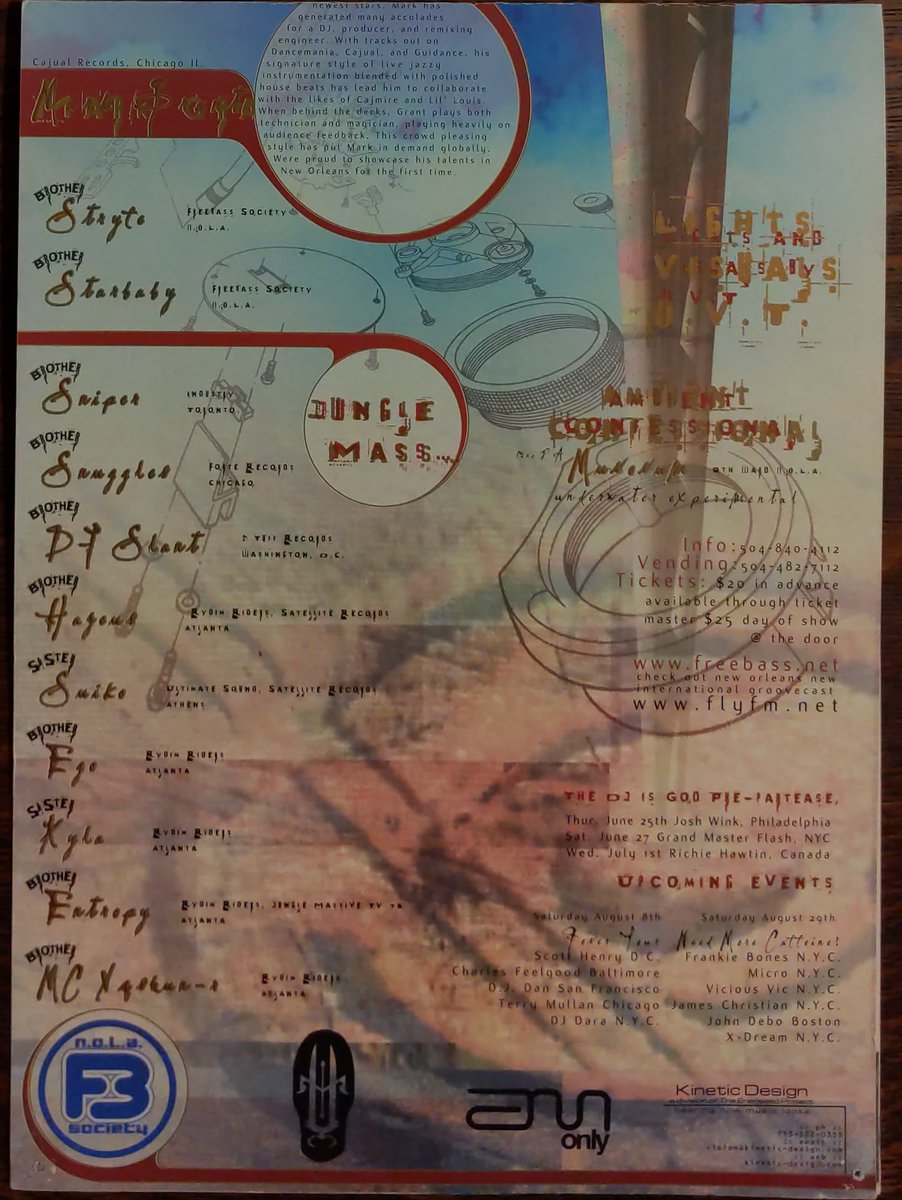 newest stars. Mark has
generated many accolades
for a DJ, producer, and remixing
engineer. With tracks out on
Dancemania, Cajual, and Guidance, his
signature style of live jazzy
instrumentation blended with polished
house beats has lead him to collaborate
with the likes of Cajmire and Lil' Louis.
When behind the decks, Grant plays both
technician and magician, playing heavily on
audience feedback. This crowd pleasing
style has put Mark in demand globally.
Were proud to showcase his talents in
New Orleans for the first time.
Cajual Records, Chicago Il.
Brother
Stryte
Freebass Society
N.O.L.A.
Brother
Starbaby
Freebass Society
N.O.L.A.
Jungle
Mass...
Brother
Sniper
Industry
Toronto
Brother
Snuggles
Records
Chicago
Brother
DJ Slant
Records
Washington, D.C.
Brother
Satellite Records
Atlanta
Sister
Suiko
Ultimate Sound, Satellite Records
Athens
Brother
Ego
Atlanta
Sister
Kyla
Atlanta
Brother
Entropy
Jungle Massive TV
Brother
MC
Atlanta
Lights
Lights and
Visuals
O.V.T.
Ambient
Confessional
underwater experimental
Info:504-840-4112
Vending:504-482-7112
Tickets: $20 in advance
available through ticket
master $25 day of show
@ the door
www.freebass.net
check out new orleans new
international groovecast
www.flyfm.net
The DJ is God Pre-Partease,
Thur. June 25th Josh Wink, Philadelphia
Sat. June 27 Grand Master Flash, NYC
Wed. July 1st Richie Hawtin, Canada
Upcoming Events
Saturday August 8th
Fever Four
Scott Henry D.C.
Charles Feelgood Baltimore
D.J. Dan San Francisco
Terry Mullan Chicago
DJ Dara N.Y.C.
Saturday August 29th
Need More Caffeine!
Frankie Bones N.Y.C.
Micro N.Y.C.
Vicious Vic N.Y.C.
James Christian N.Y.C.
John Debo Boston
X-Dream N.Y.C.
n.o.l.a.
FB
society
am
only
Kinetic Design
a division of The Energized Project
hearing how music looks
:: ph ::
:: email ::
:: web ::
kinetic-design.com